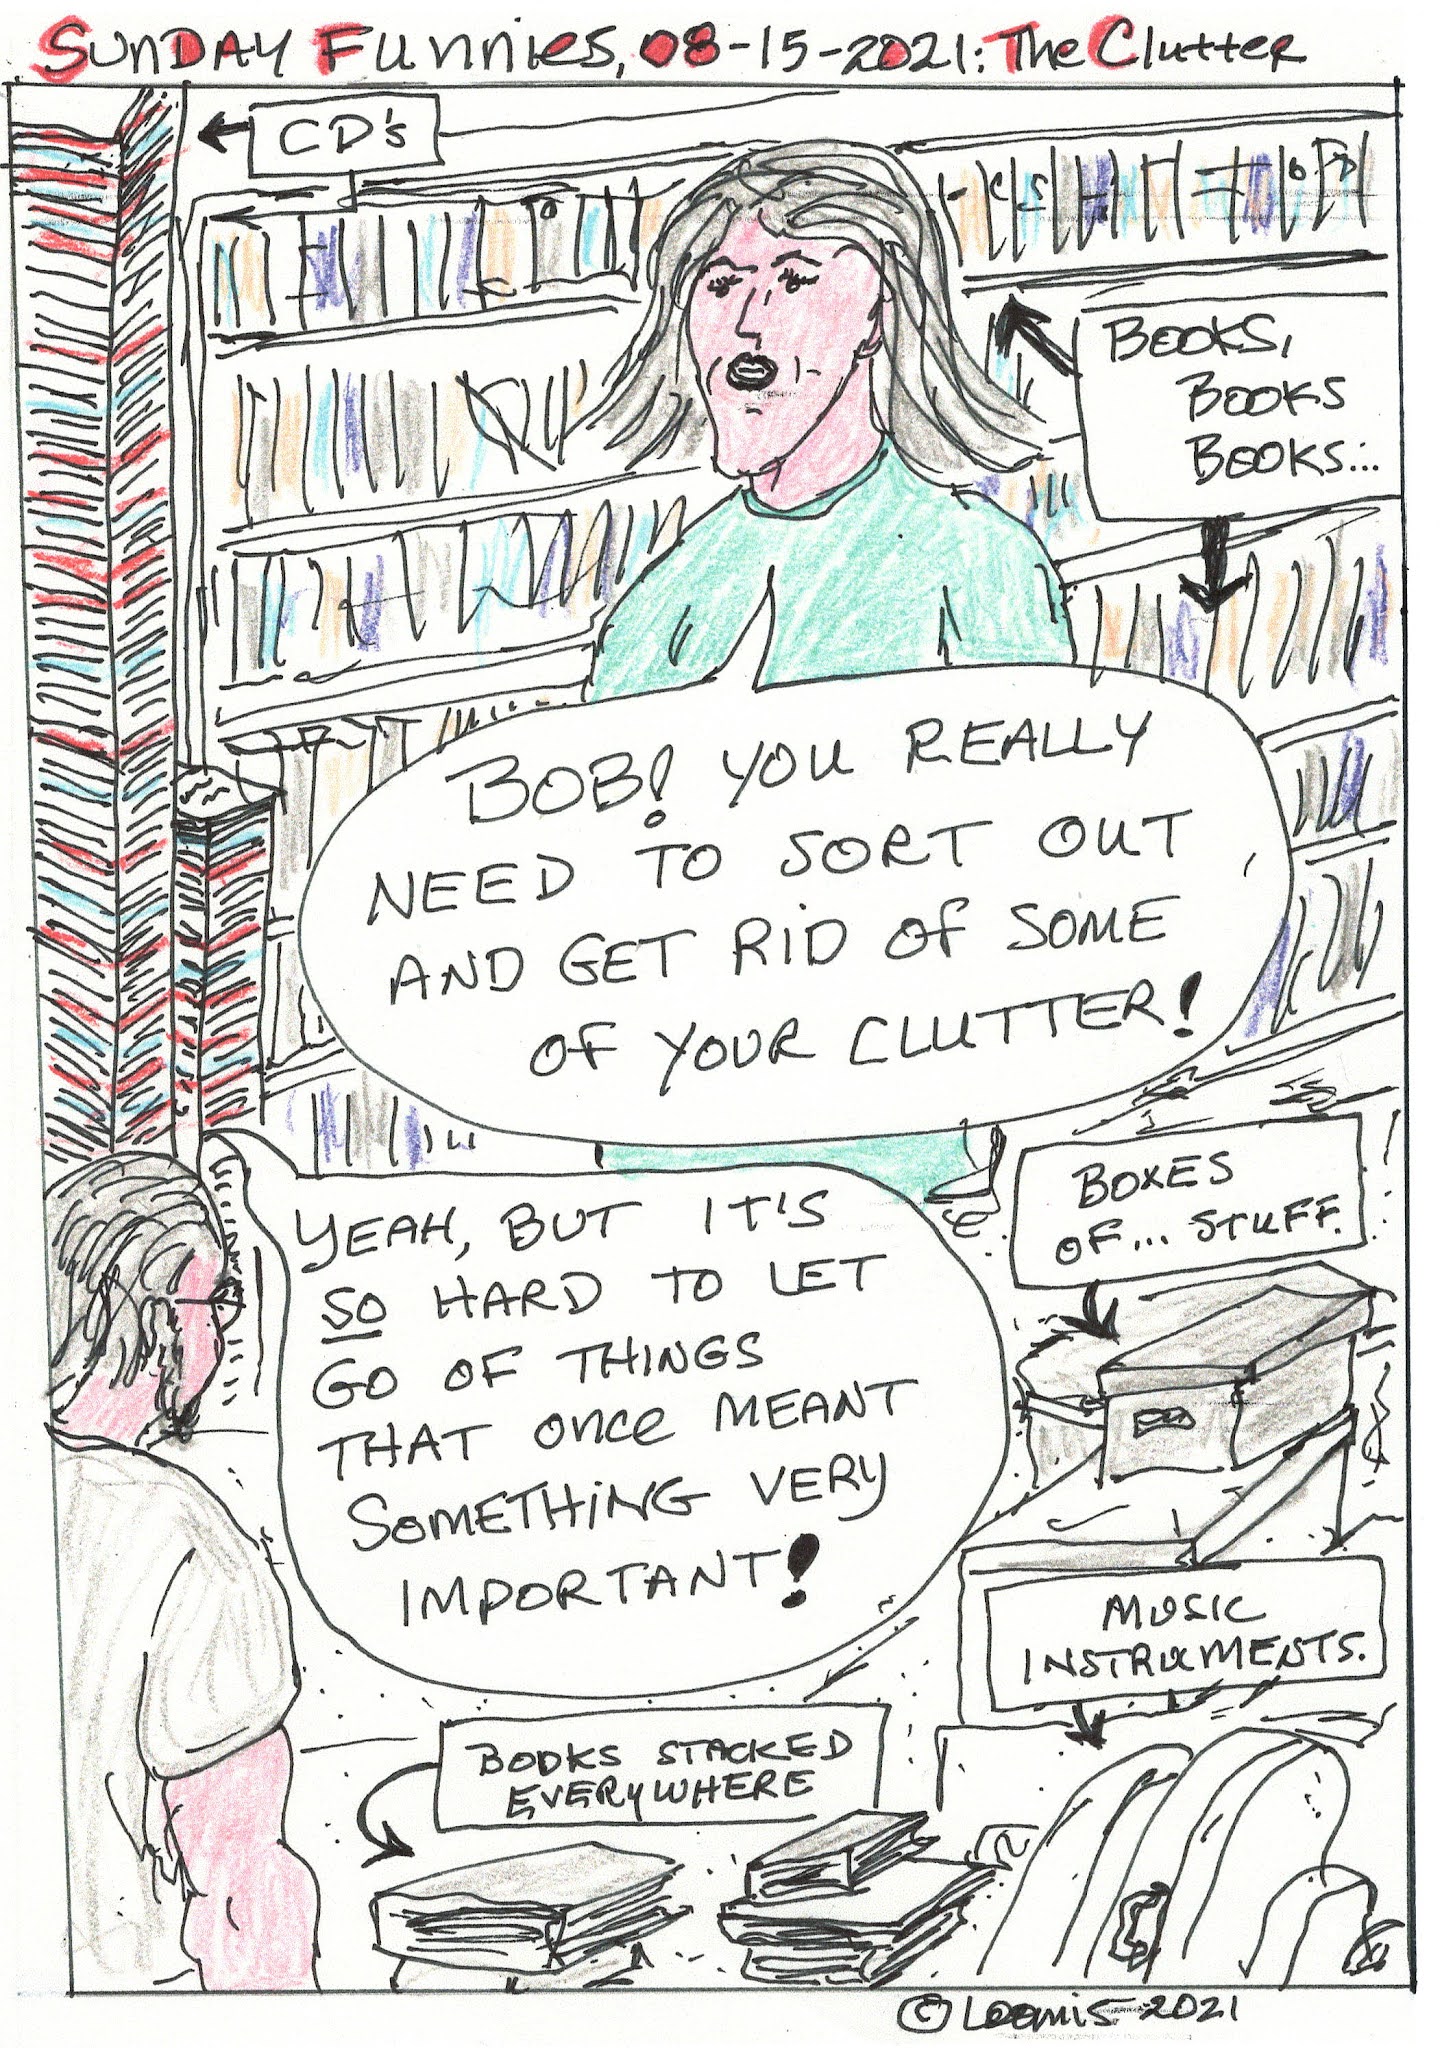 SUNDAY FUNNIES, 08-15-2021: THE CLUTTER
CD's
BOOKS,
BOOKS
BOOKS...
BOB! YOU REALLY
NEED TO SORT OUT
AND GET RID OF SOME
OF YOUR CLUTTER!
YEAH, BUT IT'S
SO HARD TO LET
GO OF THINGS
THAT ONCE MEANT
SOMETHING VERY
IMPORTANT!
BOXES
OF... STUFF.
MUSIC
INSTRUMENTS.
BOOKS STACKED
EVERYWHERE
© Loomis 2021